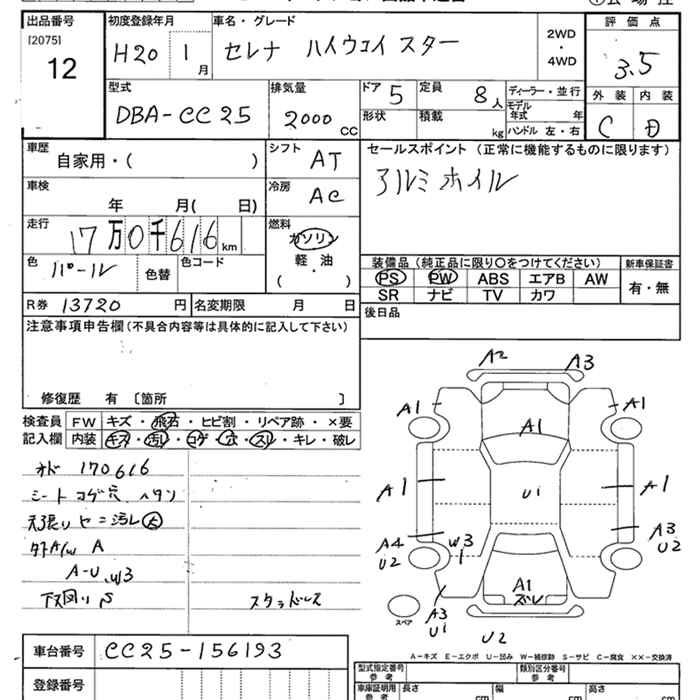 出品番号 初度登録年月 車名・グレード 評価点
[2075] 12 H20 1月 セレナ ハイウェイスター 2WD・4WD 3.5
型式 排気量 ドア 5 定員 8人 ディーラー・並行 外装 内装
DBA-CC25 2000CC 形状 積載 kg モデル年式 年 ハンドル 左・右 C D
車歴 自家用・( ) シフト AT セールスポイント (正常に機能するものに限ります)
車検 年 月( 日) 冷房 AC アルミホイル
走行 17万0千616km 燃料 ガソリン・軽油 ( )
色 パール 色替 色コード
装備品 (純正品に限り○をつけてください) 新車保証書
PS PW ABS エアB AW 有・無
SR ナビ TV カワ
R券 13720円 名変期限 月 日 後日品
注意事項申告欄(不具合内容等は具体的に記入して下さい)
修復歴 有 〔箇所 〕
検査員 FW キズ・飛石・ヒビ割・リペア跡・×要
記入欄 内装 キズ・汚レ・コゲ・穴・スレ・キレ・破レ
オド 170616
シート コゲ穴 ヘタリ
天張り ヤニ汚レ 大
外A/W A
A-U、W3
下回り S スタッドレス
A2 A3
A1 A1 A1
A1 U1 A1
A4 U2 W3 1 A3 U2
A1 ズレ
スペア A3 U1 U2
A-キズ E-エクボ U-凹み W-補修跡 S-サビ C-腐食 ××-交換済
車台番号 CC25-156193
登録番号
型式指定番号 参考 類別区分番号 参考
車庫証明用 参考 長さ cm 幅 cm 高さ cm